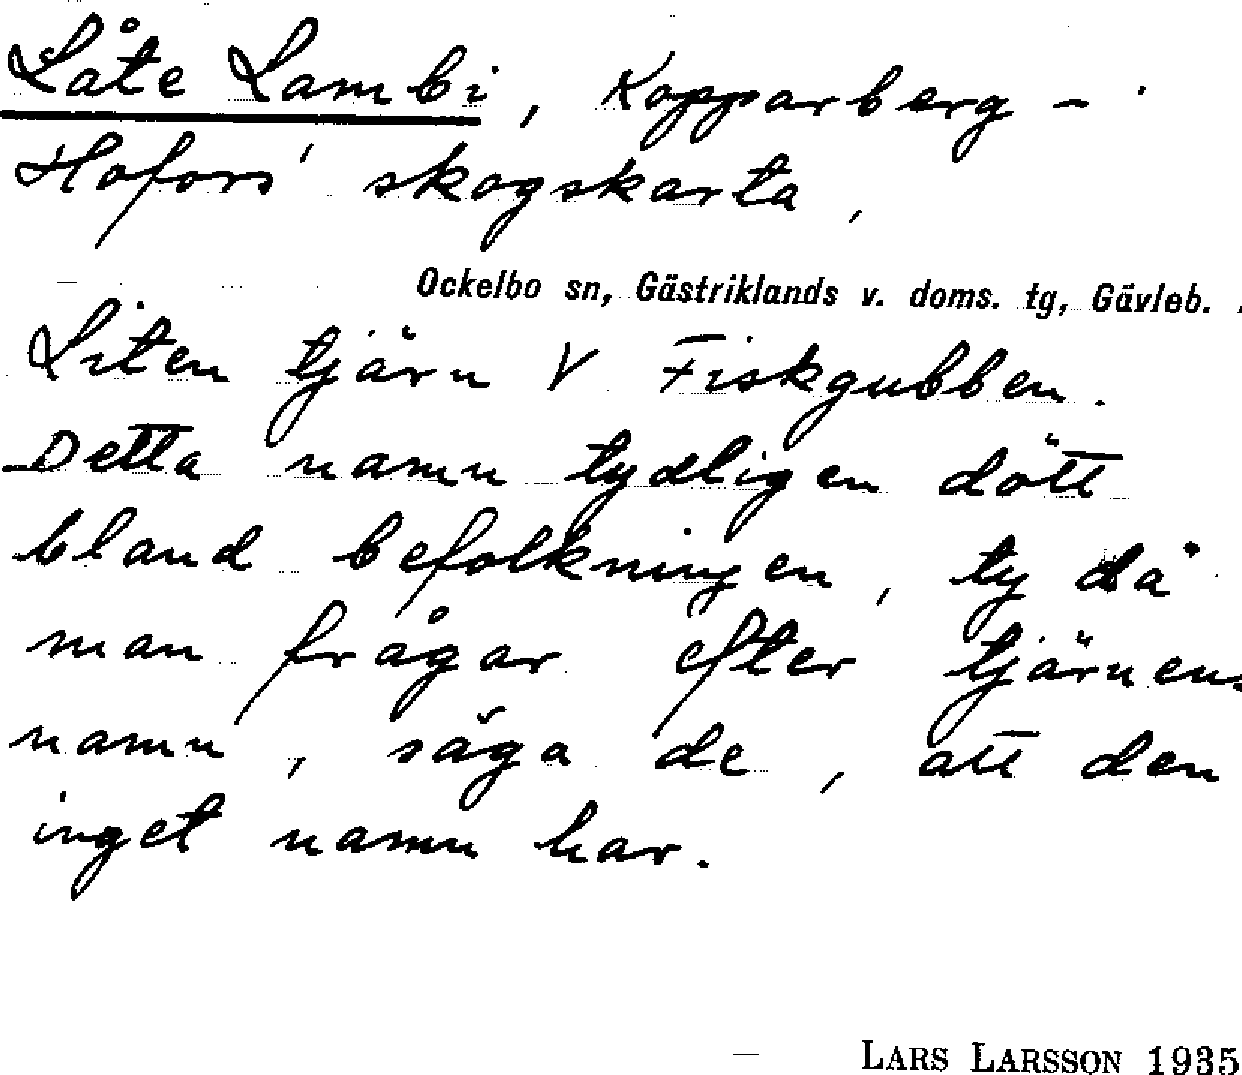 Låte Lambi, Kopparberg-
Hofors' skogskarta,
Ockelbo sn, Gästriklands v. doms. tg, Gävleb.
Liten tjärn V Fiskgubben.
Detta namn tydligen dött
bland befolkningen, ty då
man frågar efter tjärnens
namn, säga de, att den
inget namn har.
LARS LARSSON 1935